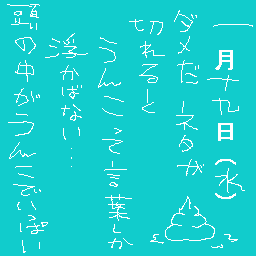 一月十九日(水)
ダメだ ネタが
切れると
うんこって言葉しか
浮かばない…
頭の中がうんこでいっぱい